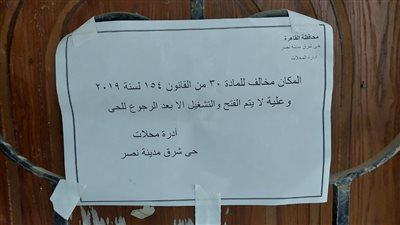 محافظة القاهرة
حى شرق مدينة نصر
أدرة المحلات
المكان مخالف للمادة ٣٠ من القانون ١٥٤ لسنة ٢٠١٩
وعلية لا يتم الفتح والتشغيل الا بعد الرجوع للحى
أدرة محلات
حى شرق مدينة نصر